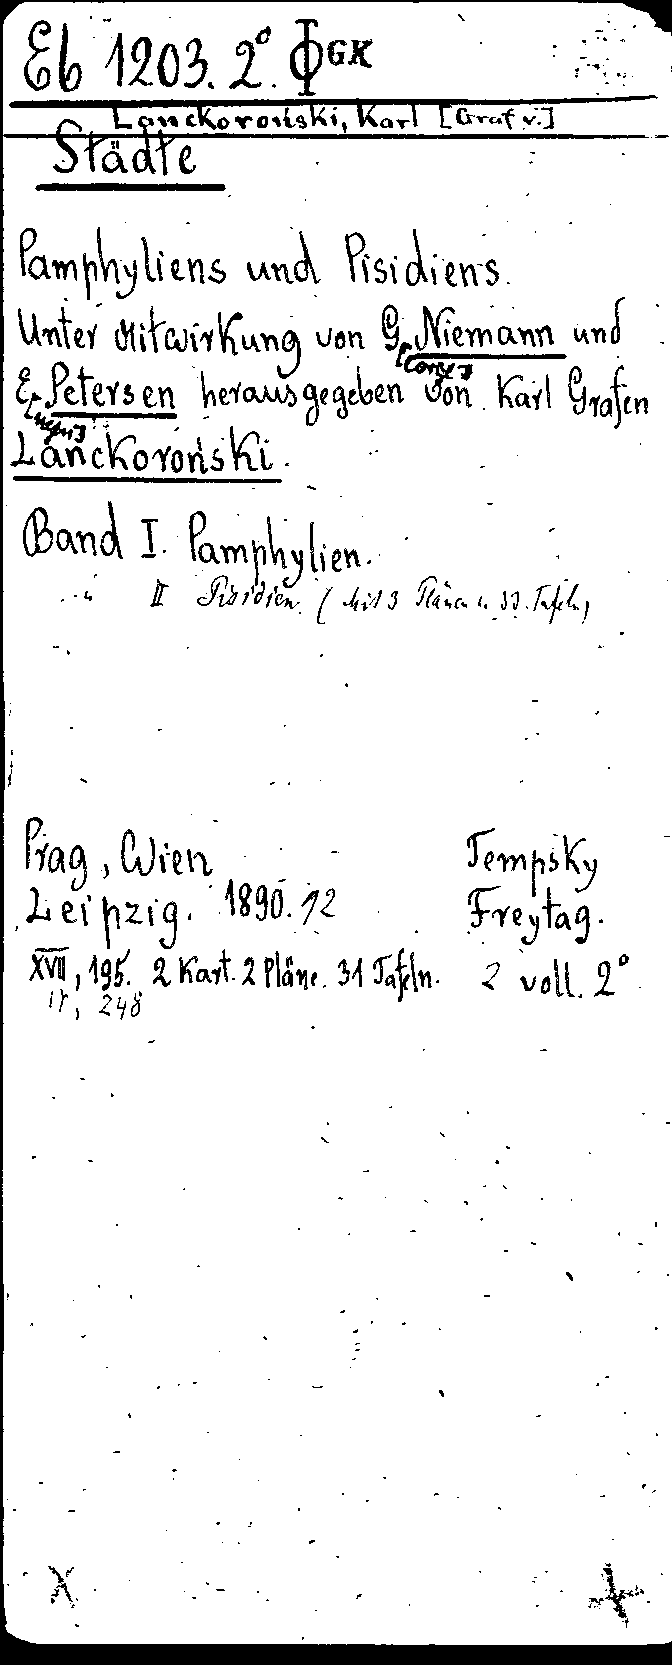 Eb 1203. 2°. Φ GK
Lanckoroński, Karl [Graf v.]
Städte
Pamphyliens und Pisidiens.
Unter Mitwirkung von G[eorg] Niemann und
E[ugen] Petersen herausgegeben von Karl Grafen
Lanckoroński.
Band I. Pamphylien.
" II Pisidien. (Mit 3 Plänen u. 33. Tafeln)
Prag, Wien Tempsky
Leipzig. 1890. 92 Freytag.
XVII, 195. 2 Kart. 2 Pläne. 31 Tafeln. 2 voll. 2°
IV, 248